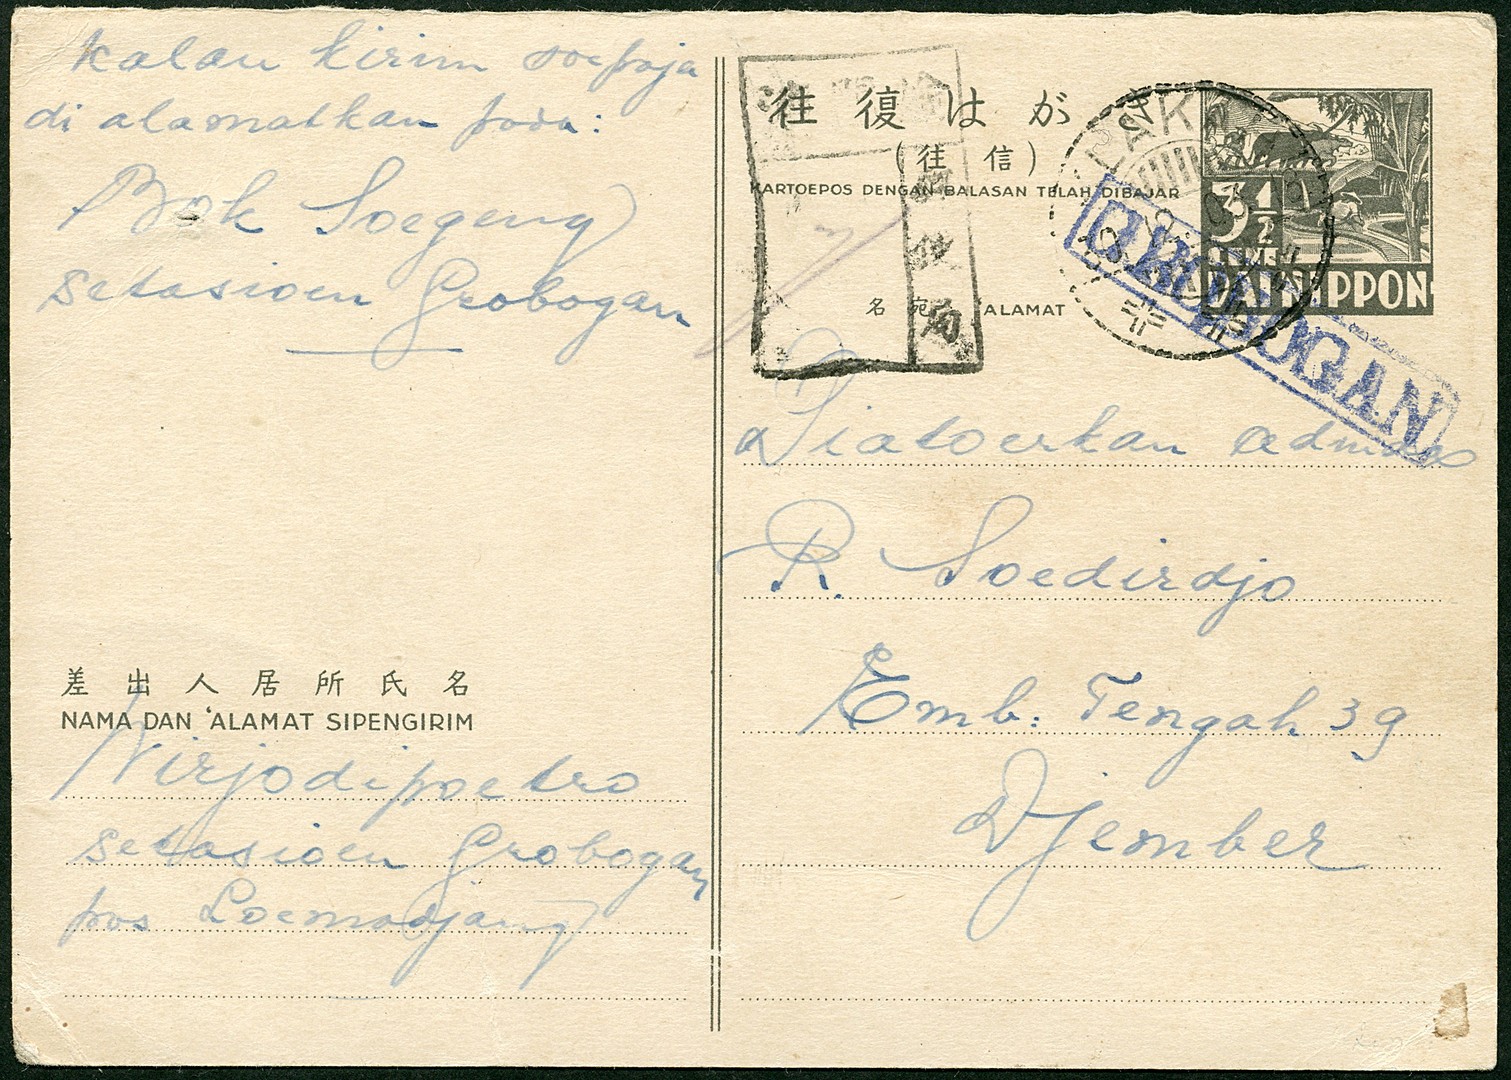 kalau kirim soepaja
di alamatkan pada:
Bok Soegeng
setasioen Grobogan
差出人居所氏名
NAMA DAN 'ALAMAT SIPENGIRIM
Wirjodipoetro
setasioen Grobogan
pos Loemadjang
往復はが
(往信)
KARTOEPOS DENGAN BALASAN TELAH DIBAJAR
3½
CENTS
DAI NIPPON
GROBOGAN
名宛 'ALAMAT
Diatoerkan
R. Soedirdjo
Emb: Tengah 39
Djember